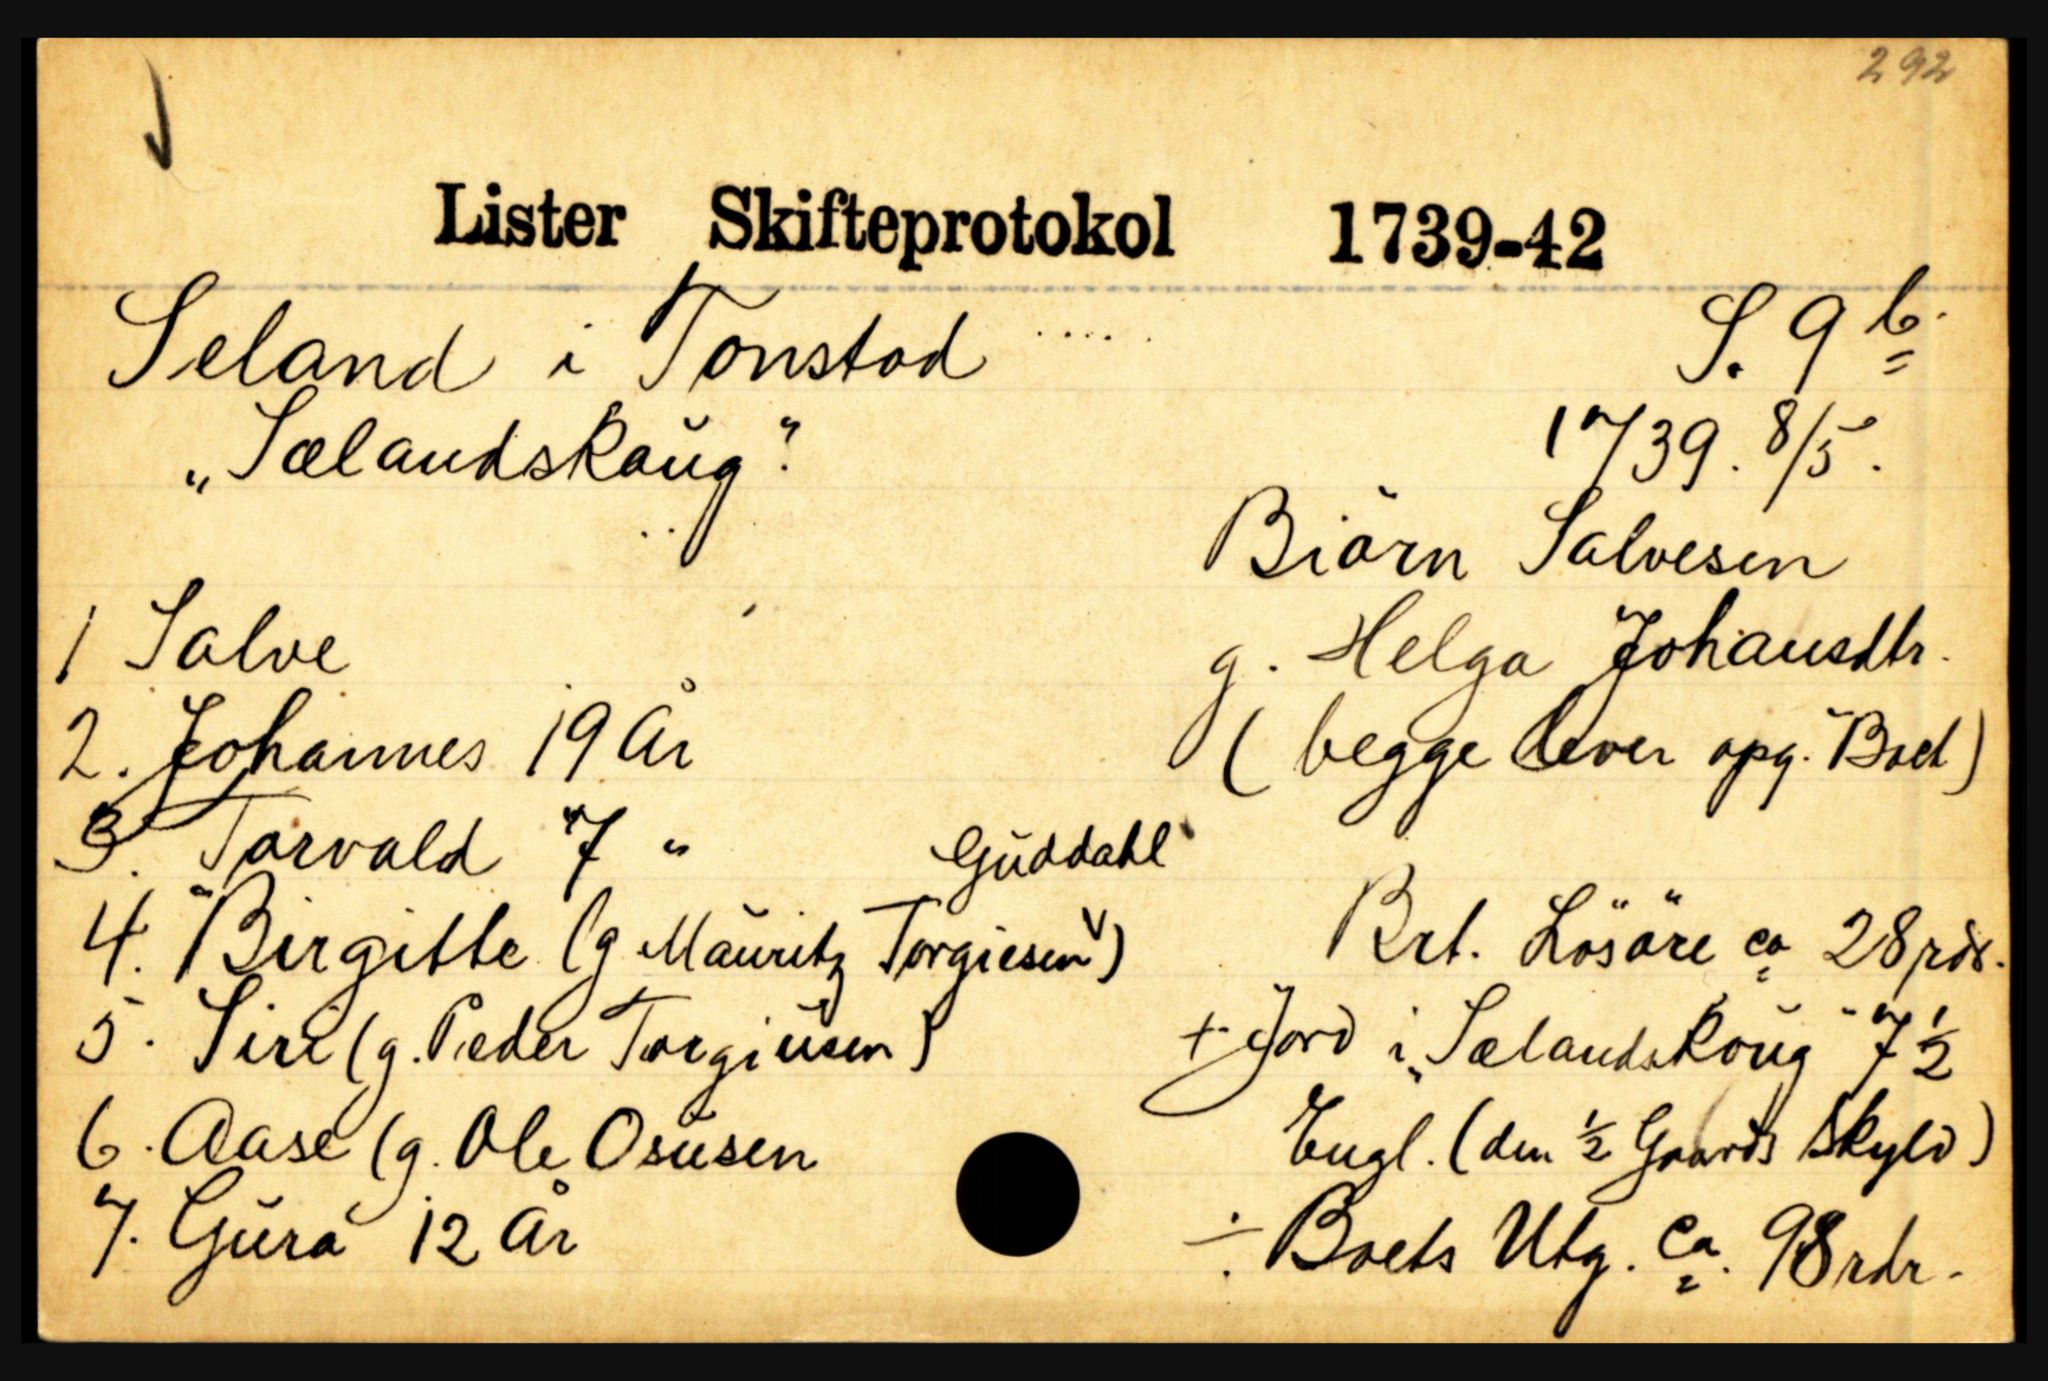 292
Lister Skifteprotokol 1739-42
Seland i Tonstad
S. 9 b.
„Sælandskoug"
1739. 8/5.
Biörn Salvesen
g. Helga Johansdtr.
( begge lever opg. Boet )
1 Salve
2. Johannes 19 År
3. Torvald 7 "
4. Birgitte (g Mauritz Torgiesen Guddahl)
5. Siri (g. Peder Torgiusen)
6. Aase (g. Ole Osusen
7. Gura 12 År
Brt. Lösöre ca 28 rdr.
+ Jord i „Sælandskoug" 7 1/2
Engl. (den 1/2 Gaards Skyld)
÷ Boets Utg. ca. 98 rdr.